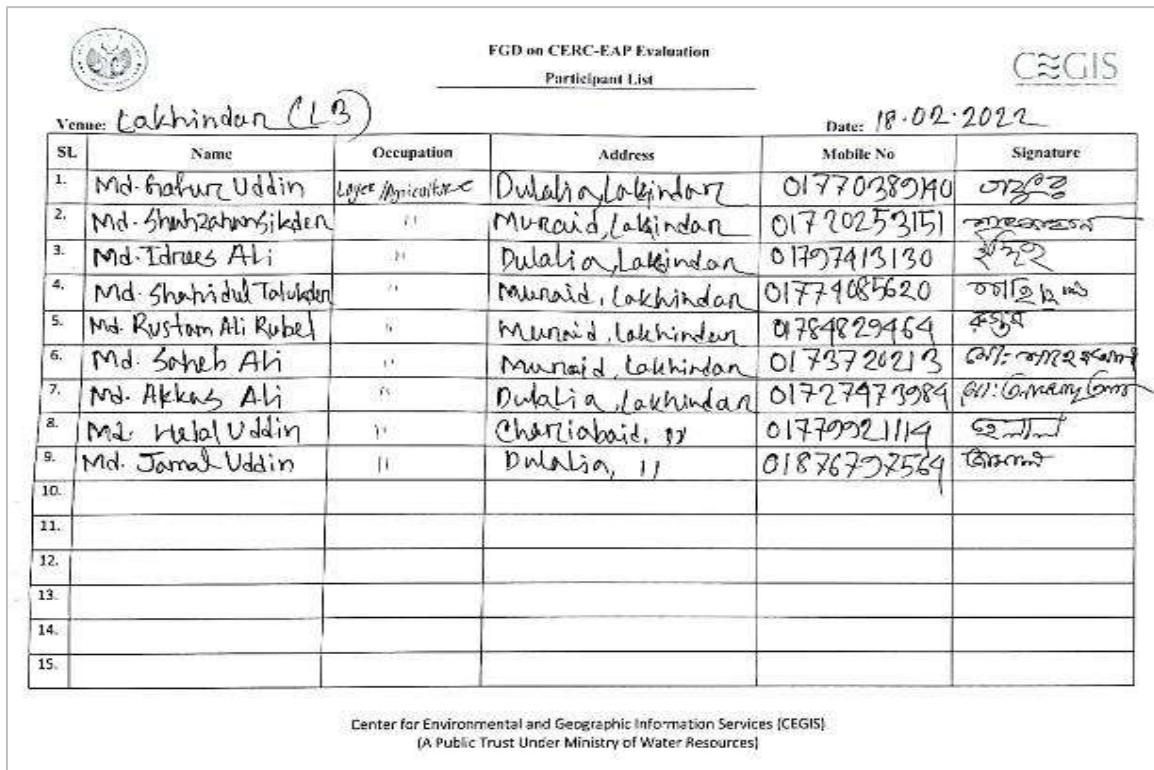 FGD on CERC-EAP Evaluation
Participant List
CEGIS
Venue: Lakhindar (LB) Date: 18.02.2022
SL Name Occupation Address Mobile No Signature
1. Md. Gafur Uddin Layer/Agriculture Dulalia, Lakindar 01770389140
2. Md. Shahzahan Sikder " Muraid, Lakindar 01720253151
3. Md. Idrees Ali " Dulalia, Lakindar 01797413130
4. Md. Shahidul Talukder " Muraid, Lakhindar 01774085620
5. Md. Rustam Ali Rubel " Muraid, Lakhindar 01784829464 রুস্তুম
6. Md. Saheb Ali " Muraid, Lakhindar 0173720213
7. Md. Akkas Ali " Dulalia, Lakhindar 01727473984
8. Md. Helal Uddin " Charliabaid, " 01779921114 হেলাল
9. Md. Jamal Uddin " Dulalia, " 01876797564 জামাল
10.
11.
12.
13.
14.
15.
Center for Environmental and Geographic Information Services (CEGIS)
(A Public Trust Under Ministry of Water Resources)